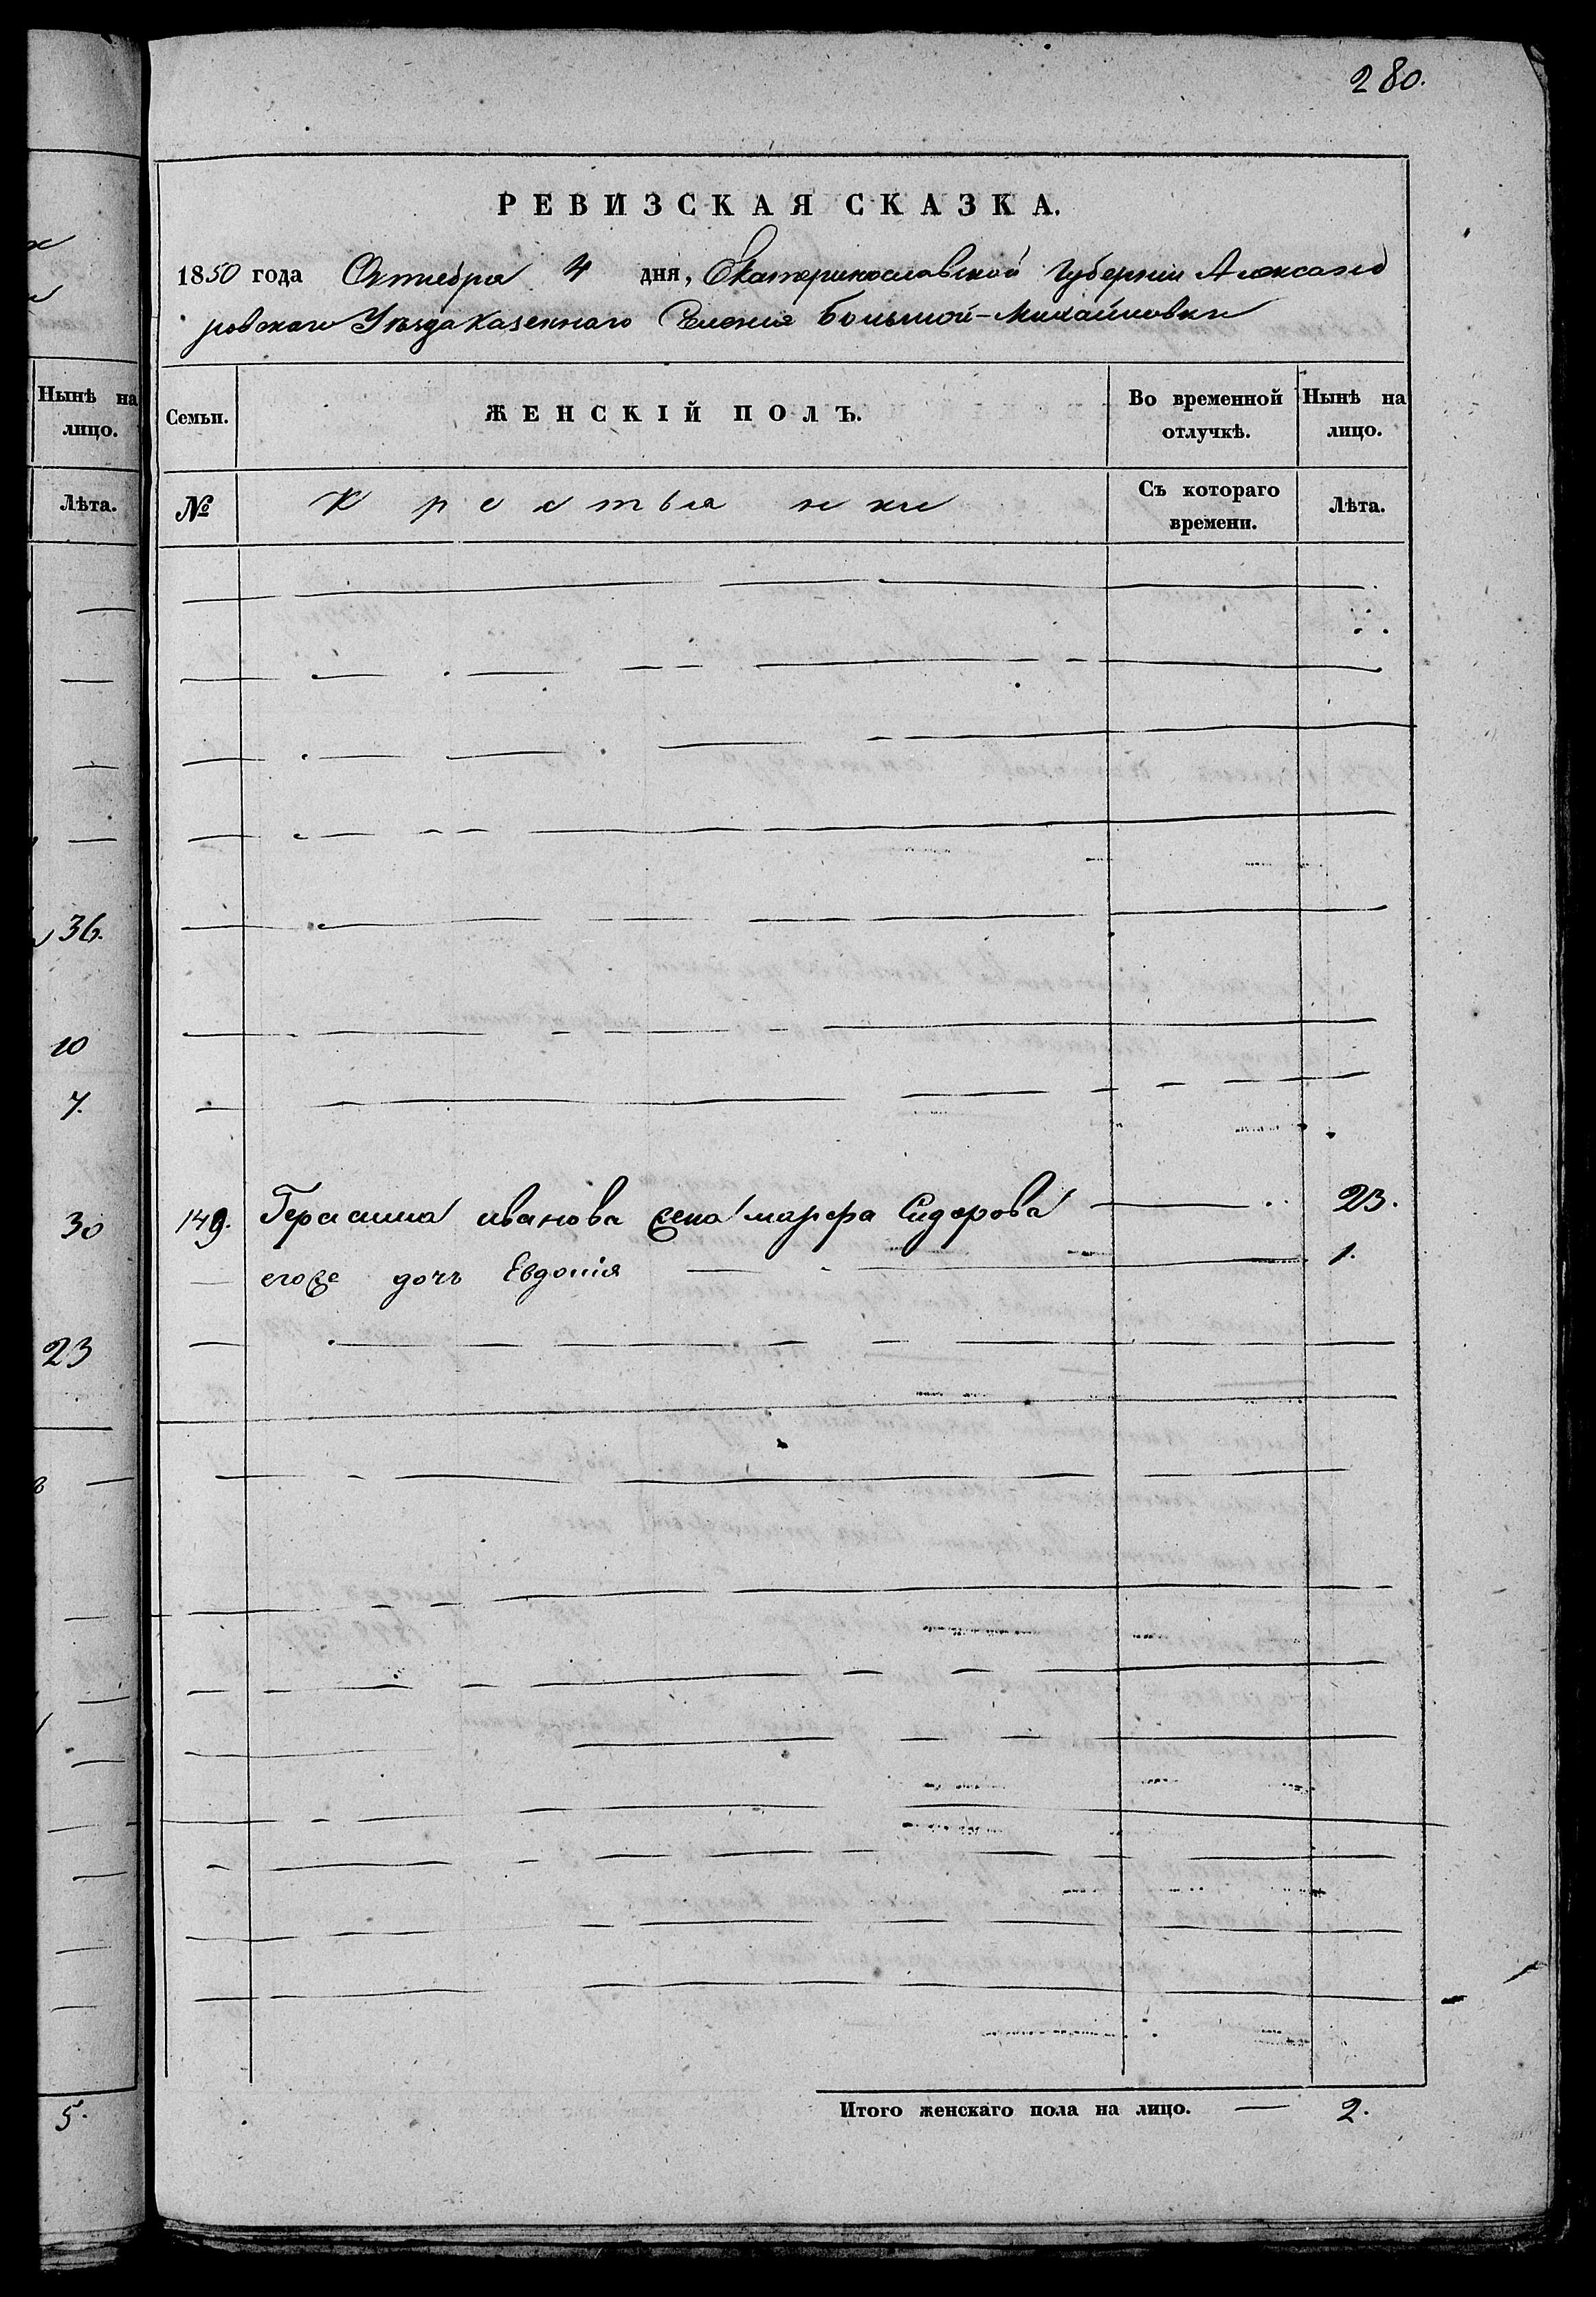 280.
РЕВИЗСКАЯ СКАЗКА.
1850 года Октября 4 дня, Екатеринославской Губернии Александ
ровскаго Уѣзда Казеннаго Селения Большой-Михайловки
Нынѣ на
лицо.
Лѣта.
36.
10
7.
30
23
5.
Семьи.
ЖЕНСКІЙ ПОЛЪ.
Во временной
отлучкѣ.
Нынѣ на
лицо.
№
Крестьянки
Съ котораго
времени.
Лѣта.
149. Герасима иванова жена марфа Сидорова 23.
егоже дочь Евдокія 1.
Итого женскаго пола на лицо. — 2.